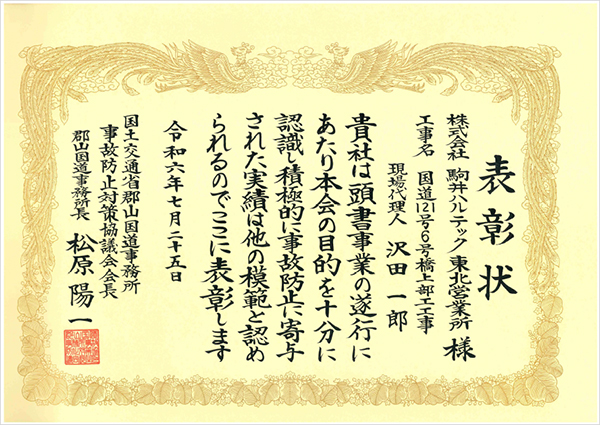 表彰状
株式会社 駒井ハルテック 東北営業所 様
工事名 国道121号6号橋上部工工事
現場代理人 沢田一郎
貴社は頭書事業の遂行に
あたり本会の目的を十分に
認識し積極的に事故防止に寄与
された実績は他の模範と認め
られるのでここに表彰します
令和六年七月二十五日
国土交通省郡山国道事務所
事故防止対策協議会会長
郡山国道事務所長 松原陽一